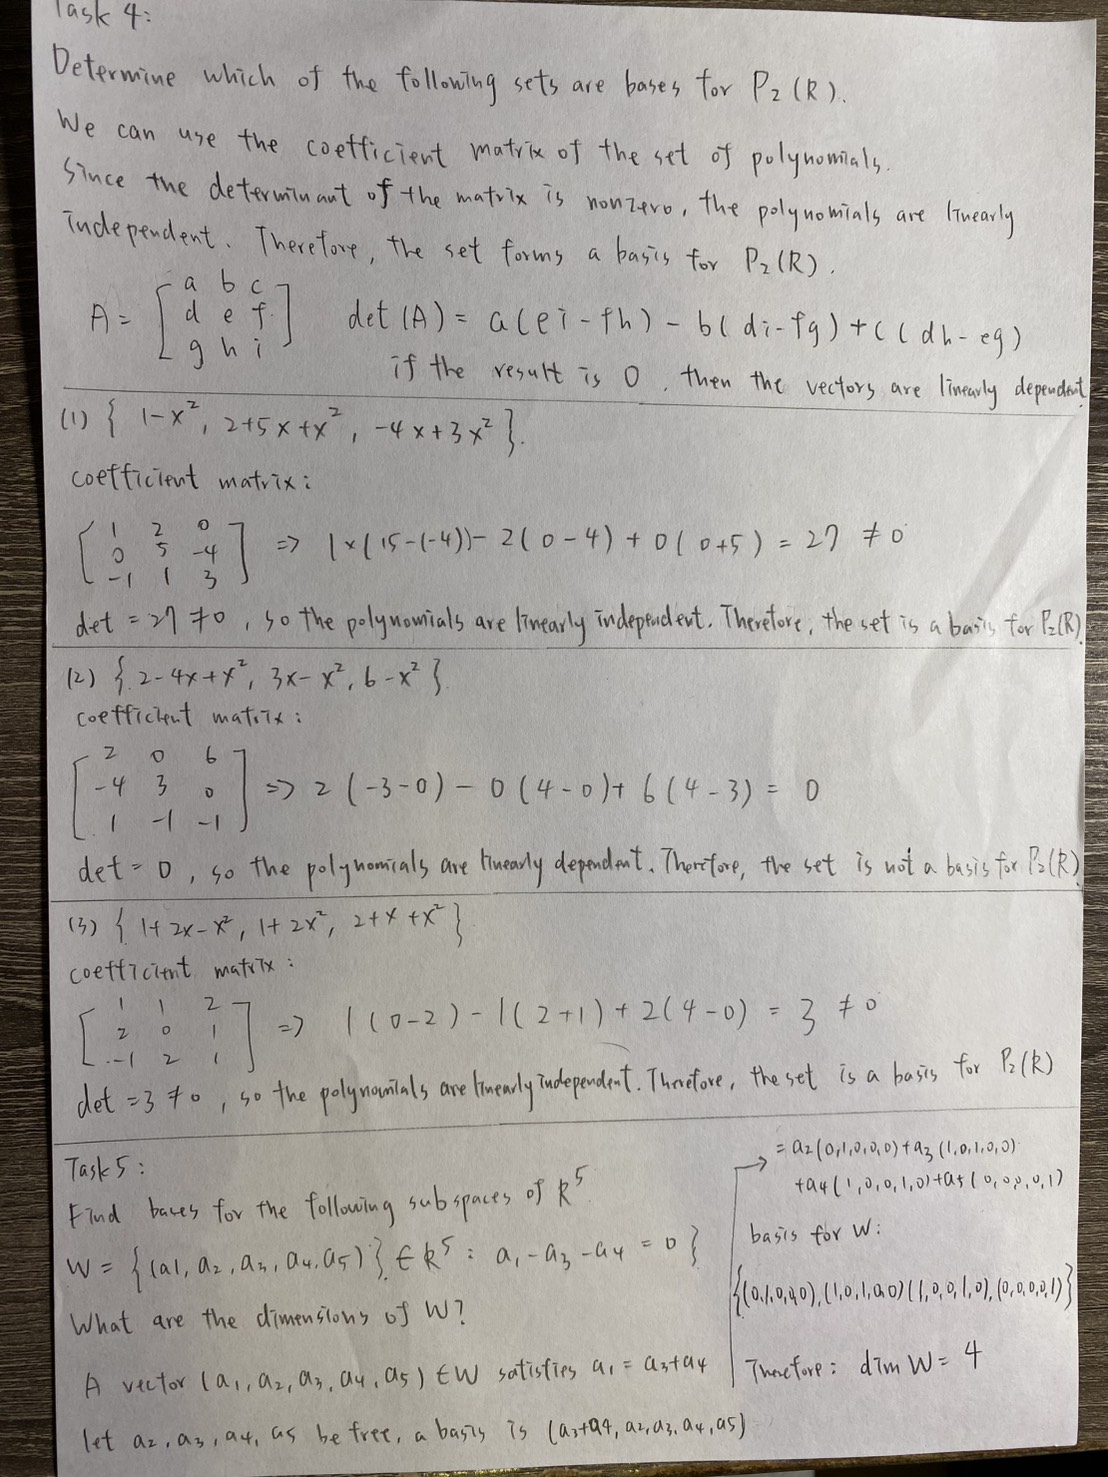 Task 4:
Determine which of the following sets are bases for P₂(R).
We can use the coefficient matrix of the set of polynomials.
Since the determinant of the matrix is nonzero, the polynomials are linearly
independent. Therefore, the set forms a basis for P₂(R).
A = [ a b c
d e f
g h i ]
det(A) = a(ei-fh) - b(di-fg) + c(dh-eg)
if the result is 0, then the vectors are linearly dependent
(1) { 1-x², 2+5x+x², -4x+3x² }.
coefficient matrix:
[ 1 2 0
0 5 -4
-1 1 3 ] => 1×(15-(-4)) - 2(0-4) + 0(0+5) = 27 ≠ 0
det = 27 ≠ 0, so the polynomials are linearly independent. Therefore, the set is a basis for P₂(R)
(2) { 2-4x+x², 3x-x², 6-x² }.
coefficient matrix:
[ 2 0 6
-4 3 0
1 -1 -1 ] => 2(-3-0) - 0(4-0) + 6(4-3) = 0
det = 0, so the polynomials are linearly dependent. Therefore, the set is not a basis for P₂(R)
(3) { 1+2x-x², 1+2x², 2+x+x² }
coefficient matrix:
[ 1 1 2
2 0 1
-1 2 1 ] => 1(0-2) - 1(2+1) + 2(4-0) = 3 ≠ 0
det = 3 ≠ 0, so the polynomials are linearly independent. Therefore, the set is a basis for P₂(R)
Task 5:
Find bases for the following subspaces of R⁵
W = {(a1, a₂, a₃, a₄, a₅)} ∈ R⁵ : a₁ - a₃ - a₄ = 0 }
What are the dimensions of W?
A vector (a₁, a₂, a₃, a₄, a₅) ∈ W satisfies a₁ = a₃+a₄
let a₂, a₃, a₄, a₅ be free, a basis is (a₃+a₄, a₂, a₃, a₄, a₅)
→ = a₂(0,1,0,0,0) + a₃(1,0,1,0,0)
+a₄(1,0,0,1,0) + a₅(0,0,0,0,1)
basis for W:
{(0,1,0,0,0), (1,0,1,0,0) (1,0,0,1,0), (0,0,0,0,1)}
Therefore: dim W = 4